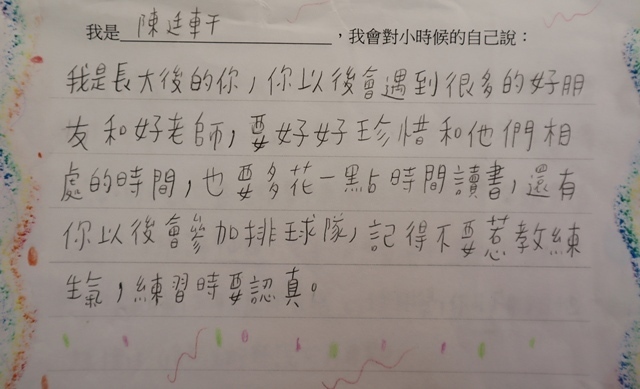 我是陳廷軒，我會對小時候的自己說：
我是長大後的你，你以後會遇到很多的好朋
友和好老師，要好好珍惜和他們相
處的時間，也要多花一點時間讀書，還有
你以後會參加排球隊，記得不要惹教練
生氣，練習時要認真。